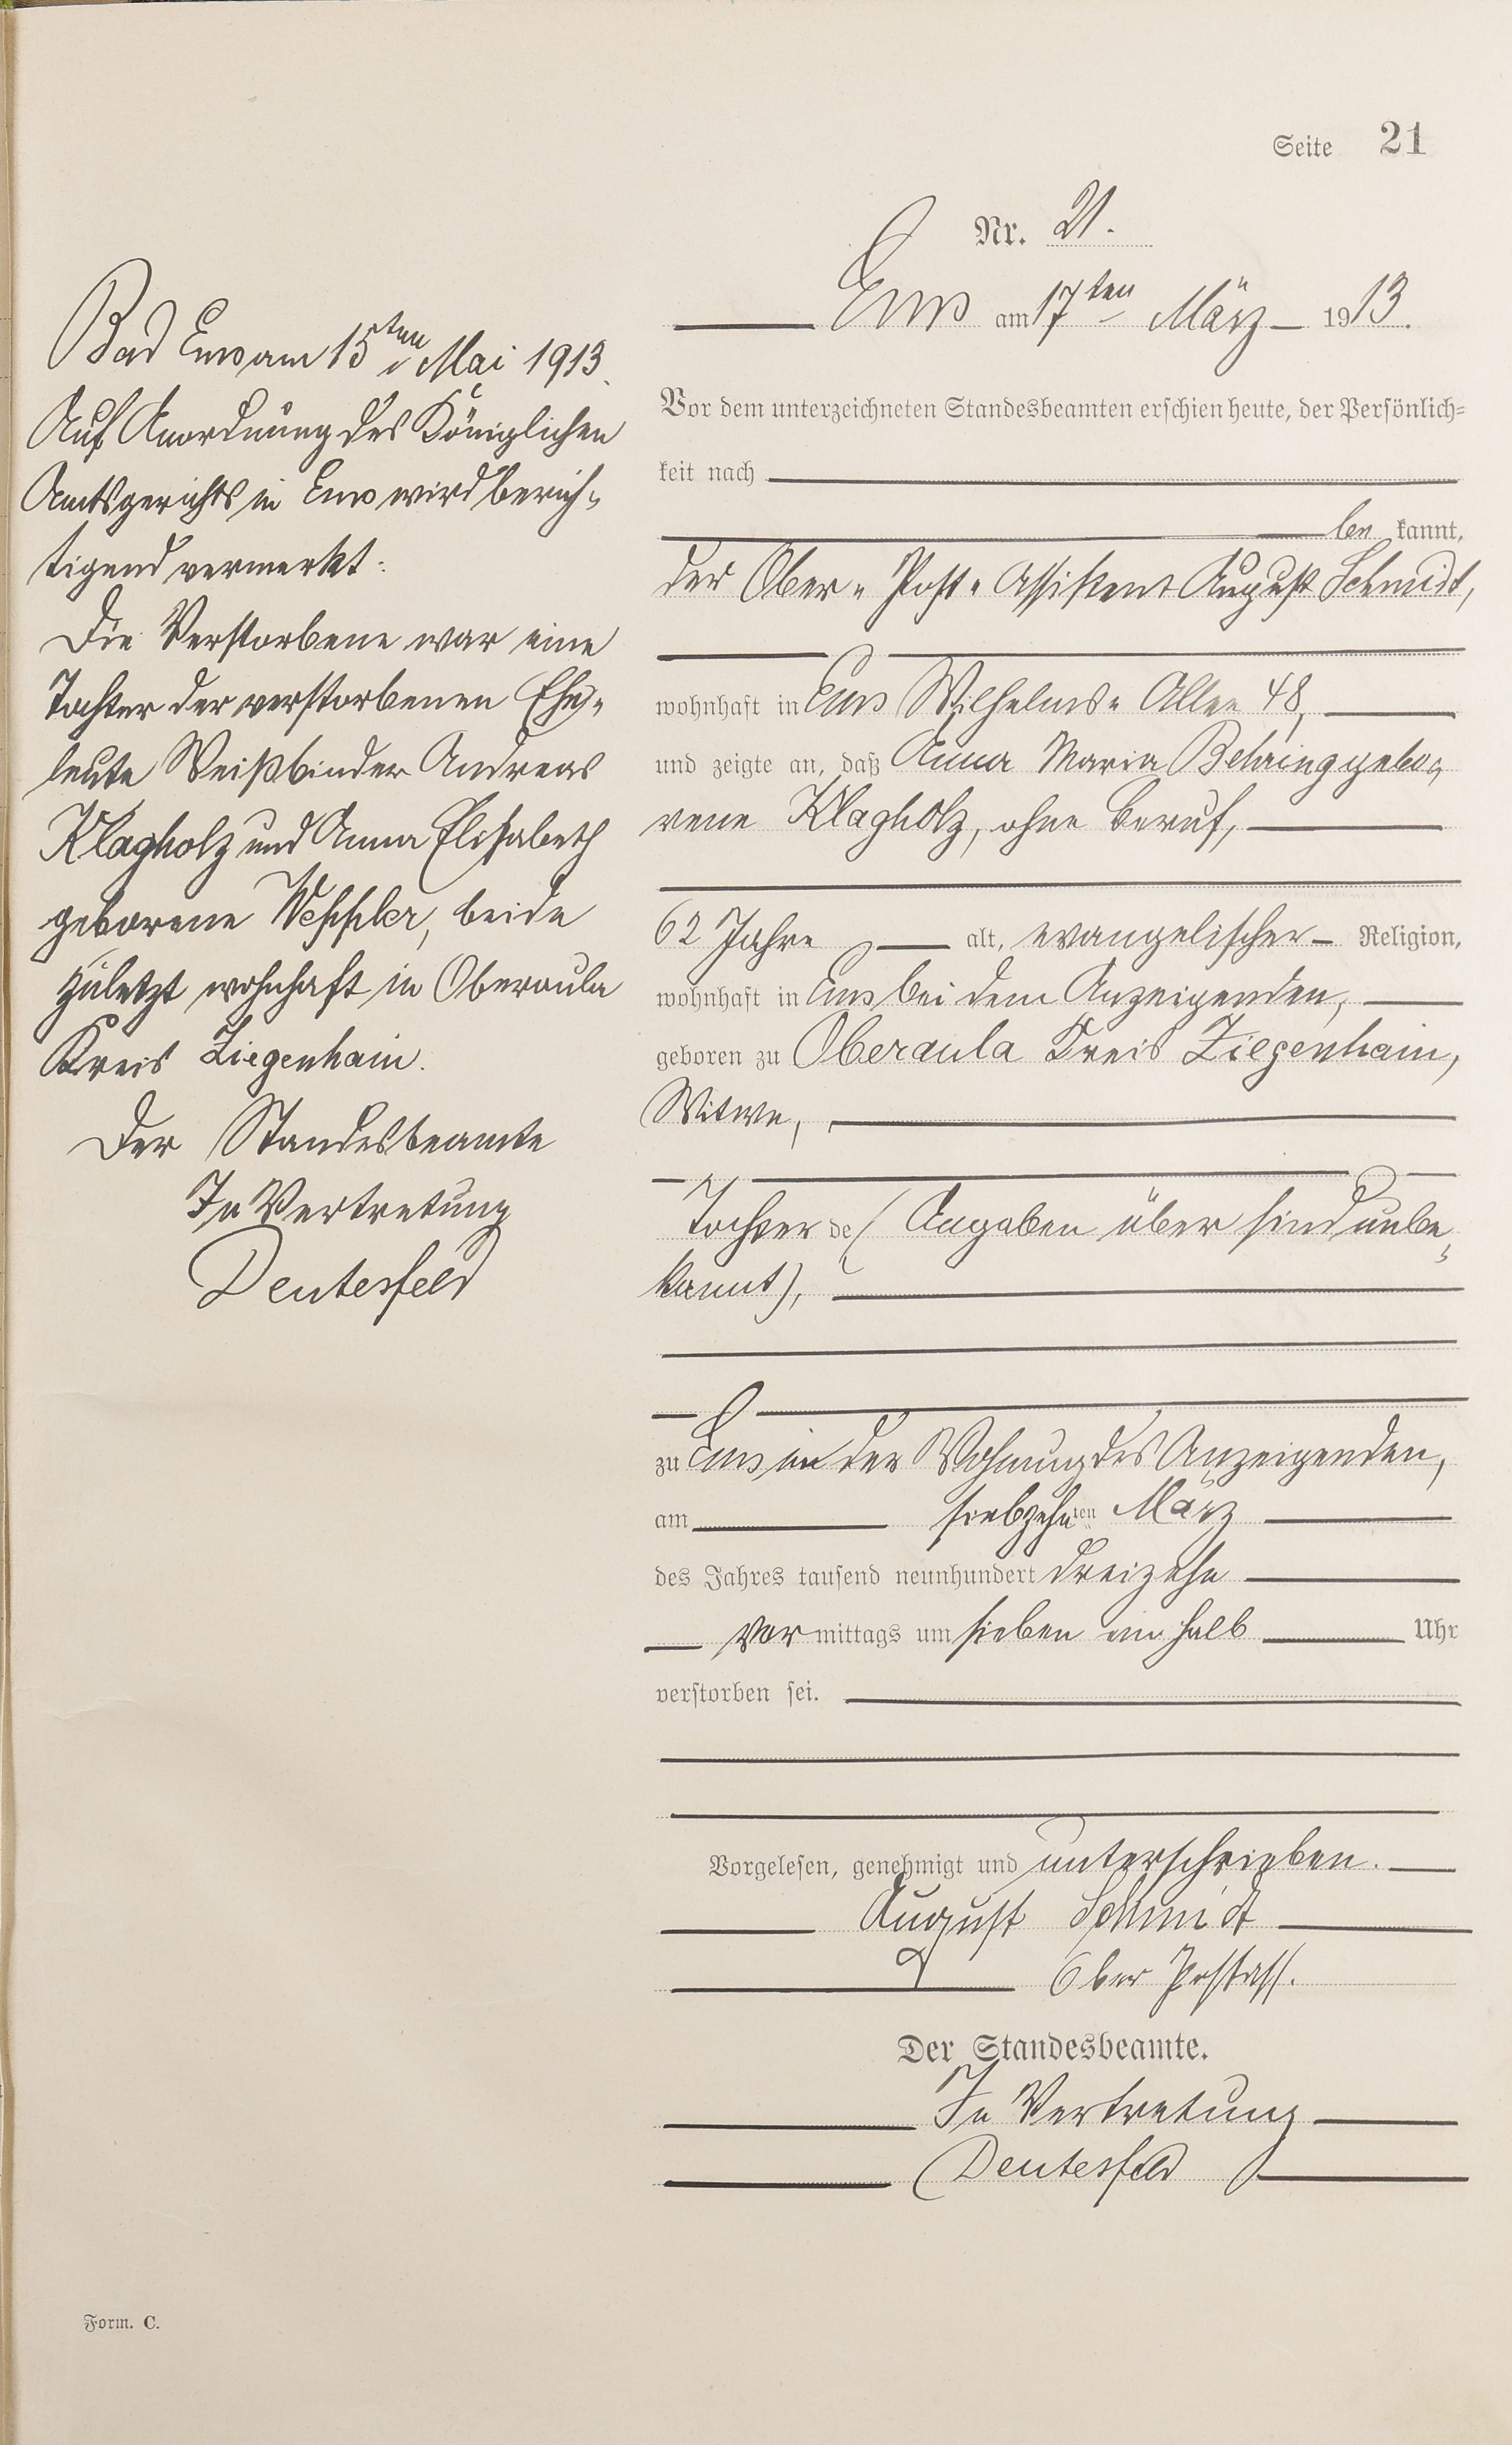 Seite 21
Nr. 21.
Ems am 17ten März 1913.
Vor dem unterzeichneten Standesbeamten erschien heute, der Persönlich-
keit nach
be kannt,
der Ober-Post-Assistent August Schmidt,
wohnhaft in Ems Wilhelms-Allee 48,
und zeigte an, daß Anna Maria Behring gebo-
rene Klagholz, ohne Beruf,
62 Jahre alt, evangelischer Religion,
wohnhaft in Ems bei dem Anzeigenden,
geboren zu Oberaula Kreis Ziegenhain,
Witwe,
Tochter de (Angaben über sind unbe-
kannt),
zu Ems in der Wohnung des Anzeigenden,
am siebzehnten März
des Jahres tausend neunhundert dreizehn
vor mittags um sieben ein halb Uhr
verstorben sei.
Vorgelesen, genehmigt und unterschrieben.
August Schmidt
Ober Postass.
Der Standesbeamte.
In Vertretung
Deutesfeld
Bad Ems am 15ten Mai 1913.
Auf Anordnung des Königlichen
Amtsgerichts in Ems wird berich-
tigend vermerkt:
Die Verstorbene war eine
Tochter der verstorbenen Ehe-
leute Weißbinder Andreas
Klagholz und Anna Elisabeth
geborene, beide
zuletzt wohnhaft in Oberaula
Kreis Ziegenhain.
Der Standesbeamte
In Vertretung
Deutesfeld
Form. C.